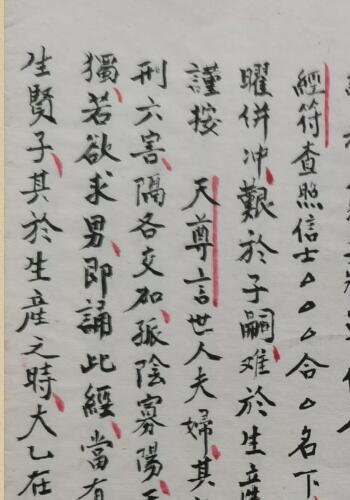 經符查照信士△△△合△名下
曜併冲艱於子嗣难於生產
謹按 天尊言世人夫婦其
刑六害隔各交加孤陰寡陽
獨若欲求男即誦此經當有
生賢子其於生產之時大乙在